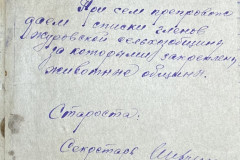 При сем препровож
даем списки членов
Журовской сельхозобщины
за которыми закреплены
животные общины.
Староста:
Секретарь